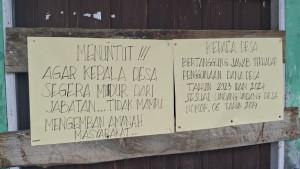 MENUNTUT !!!
AGAR KEPALA DESA
SEGERA MUNDUR DARI
JABATAN... TIDAK MAMPU
MENGEMBAN AMANAH
MASYARAKAT...
KEPADA DESA
BERTANGGUNG JAWAB TERHADAP
PENGGUNAAN DANA DESA
TAHUN 2023 DAN 2024
SESUAI UNDANG UNDANG DESA
NOMOR. 06 TAHUN 2019